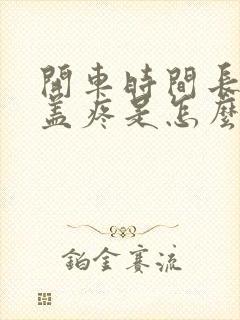 開車時間長
蓋疼是怎麼
鉑金賽流